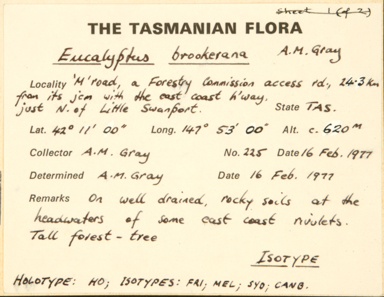 sheet 1 (of 2)
THE TASMANIAN FLORA
Eucalyptus brookerana A.M. Gray
Locality 'M' road, a Forestry Commission access rd., 24·3 km
from its jcn with the east coast h'way.
just N. of Little Swanport. State TAS.
Lat. 42° 11' 00" Long. 147° 53' 00" Alt. c. 620m
Collector A.M. Gray No. 225 Date 16 Feb. 1977
Determined A.M. Gray Date 16 Feb. 1977
Remarks On well drained, rocky soils at the
headwaters of some east coast rivulets.
Tall forest - tree
ISOTYPE
HOLOTYPE: HO; ISOTYPES: FRI; MEL; SYD; CANB.